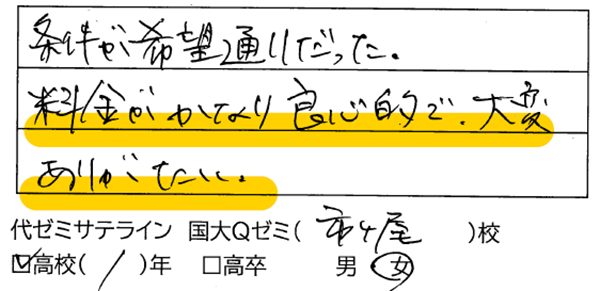 条件が希望通りだった。
料金がかなり良心的で、大変
ありがたい。
代ゼミサテライン 国大Qゼミ(市ヶ尾)校
☑高校(1)年 □高卒 男・女